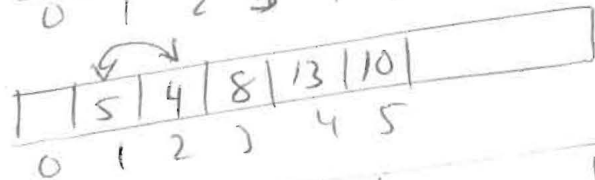 0 1 2 3
5 4 8 13 10
0 1 2 3 4 5